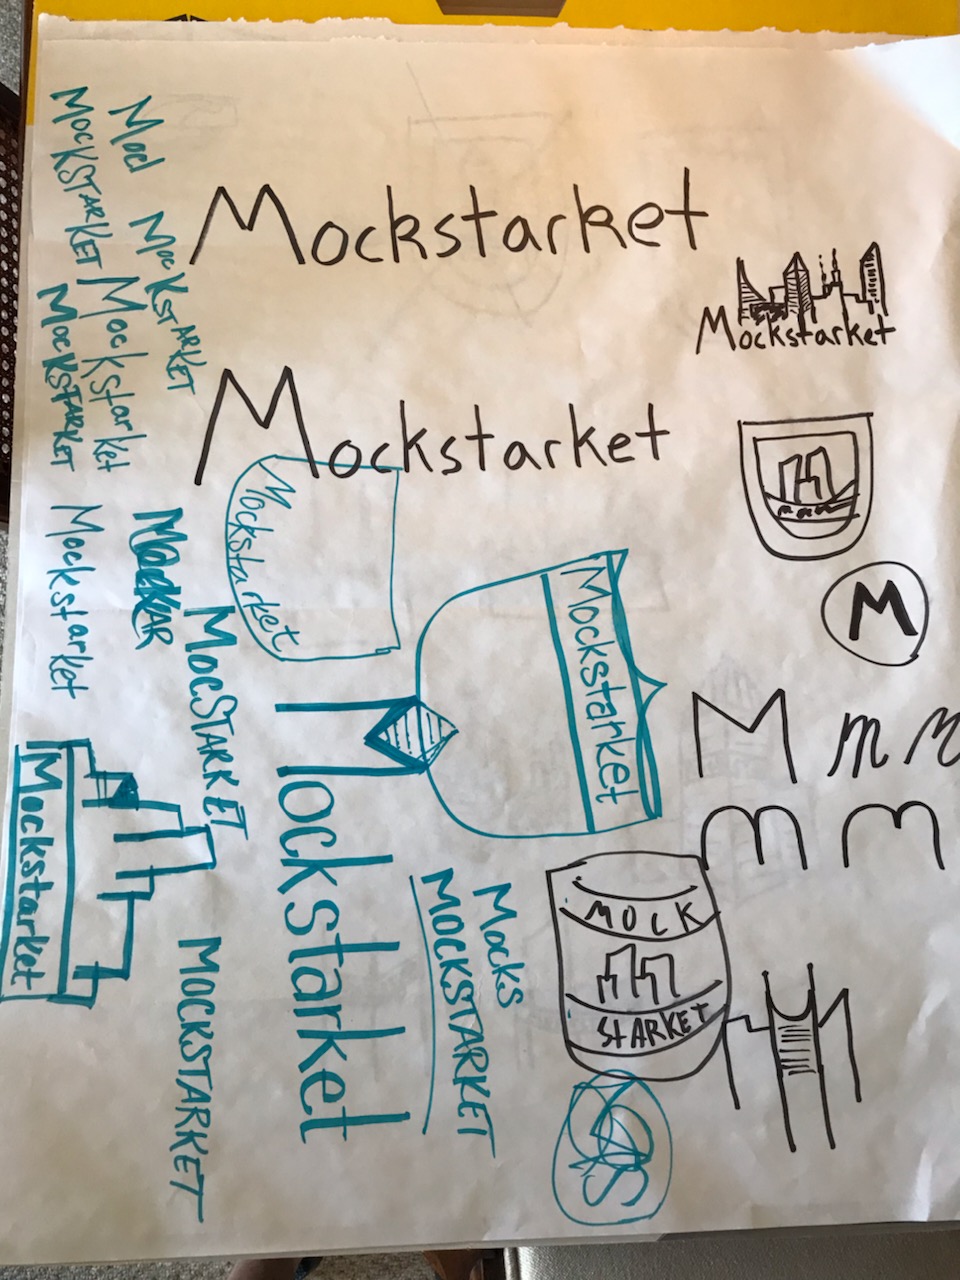 Mockstarket
Mockstarket
Mockstarket
M
M m m
m m
MOCK
STARKET
Moc
MOCKSTARKET
MOCKSTARKET
Mockstarket
MOCKSTARKET
Mockstarket
Mockstarket
MOCSTARKET
Mockstarket
Mockstarket
Mockstarket
Mocks
MOCKSTARKET
MOCKSTARKET